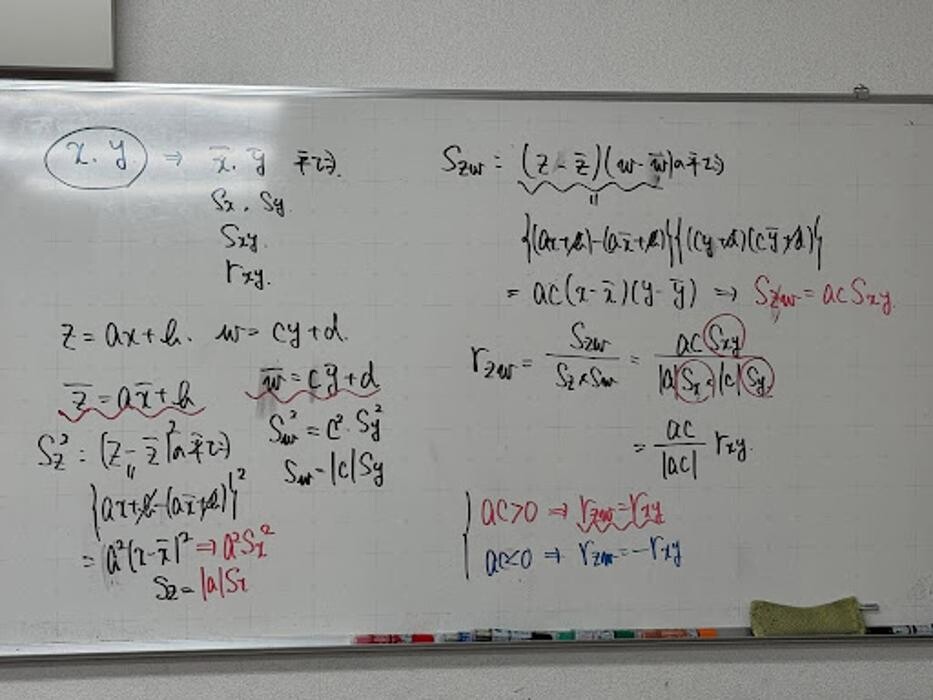 x, y ⇒ x̄, ȳ 平均
Sx, Sy
Sxy
rxy.
z = ax+b. w = cy+d.
z̄ = ax̄+b
w̄ = cȳ+d
Sz² : (z-z̄)²の平均
॥
{ax+b-(ax̄+b)}²
= a²(x-x̄)² ⇒ a²Sx²
Sz = |a|Sx
Sw² = c²·Sy²
Sw = |c|Sy
Szw : (z-z̄)(w-w̄)の平均
॥
{(ax+b)-(ax̄+b)}{(cy+d)(cȳ+d)}
= ac(x-x̄)(y-ȳ) ⇒ Szw = acSxy.
rzw = Szw / Sz×Sw = acSxy / |a|Sx·|c|Sy
= ac / |ac| rxy.
ac>0 ⇒ rzw=rxy
ac<0 ⇒ rzw=-rxy